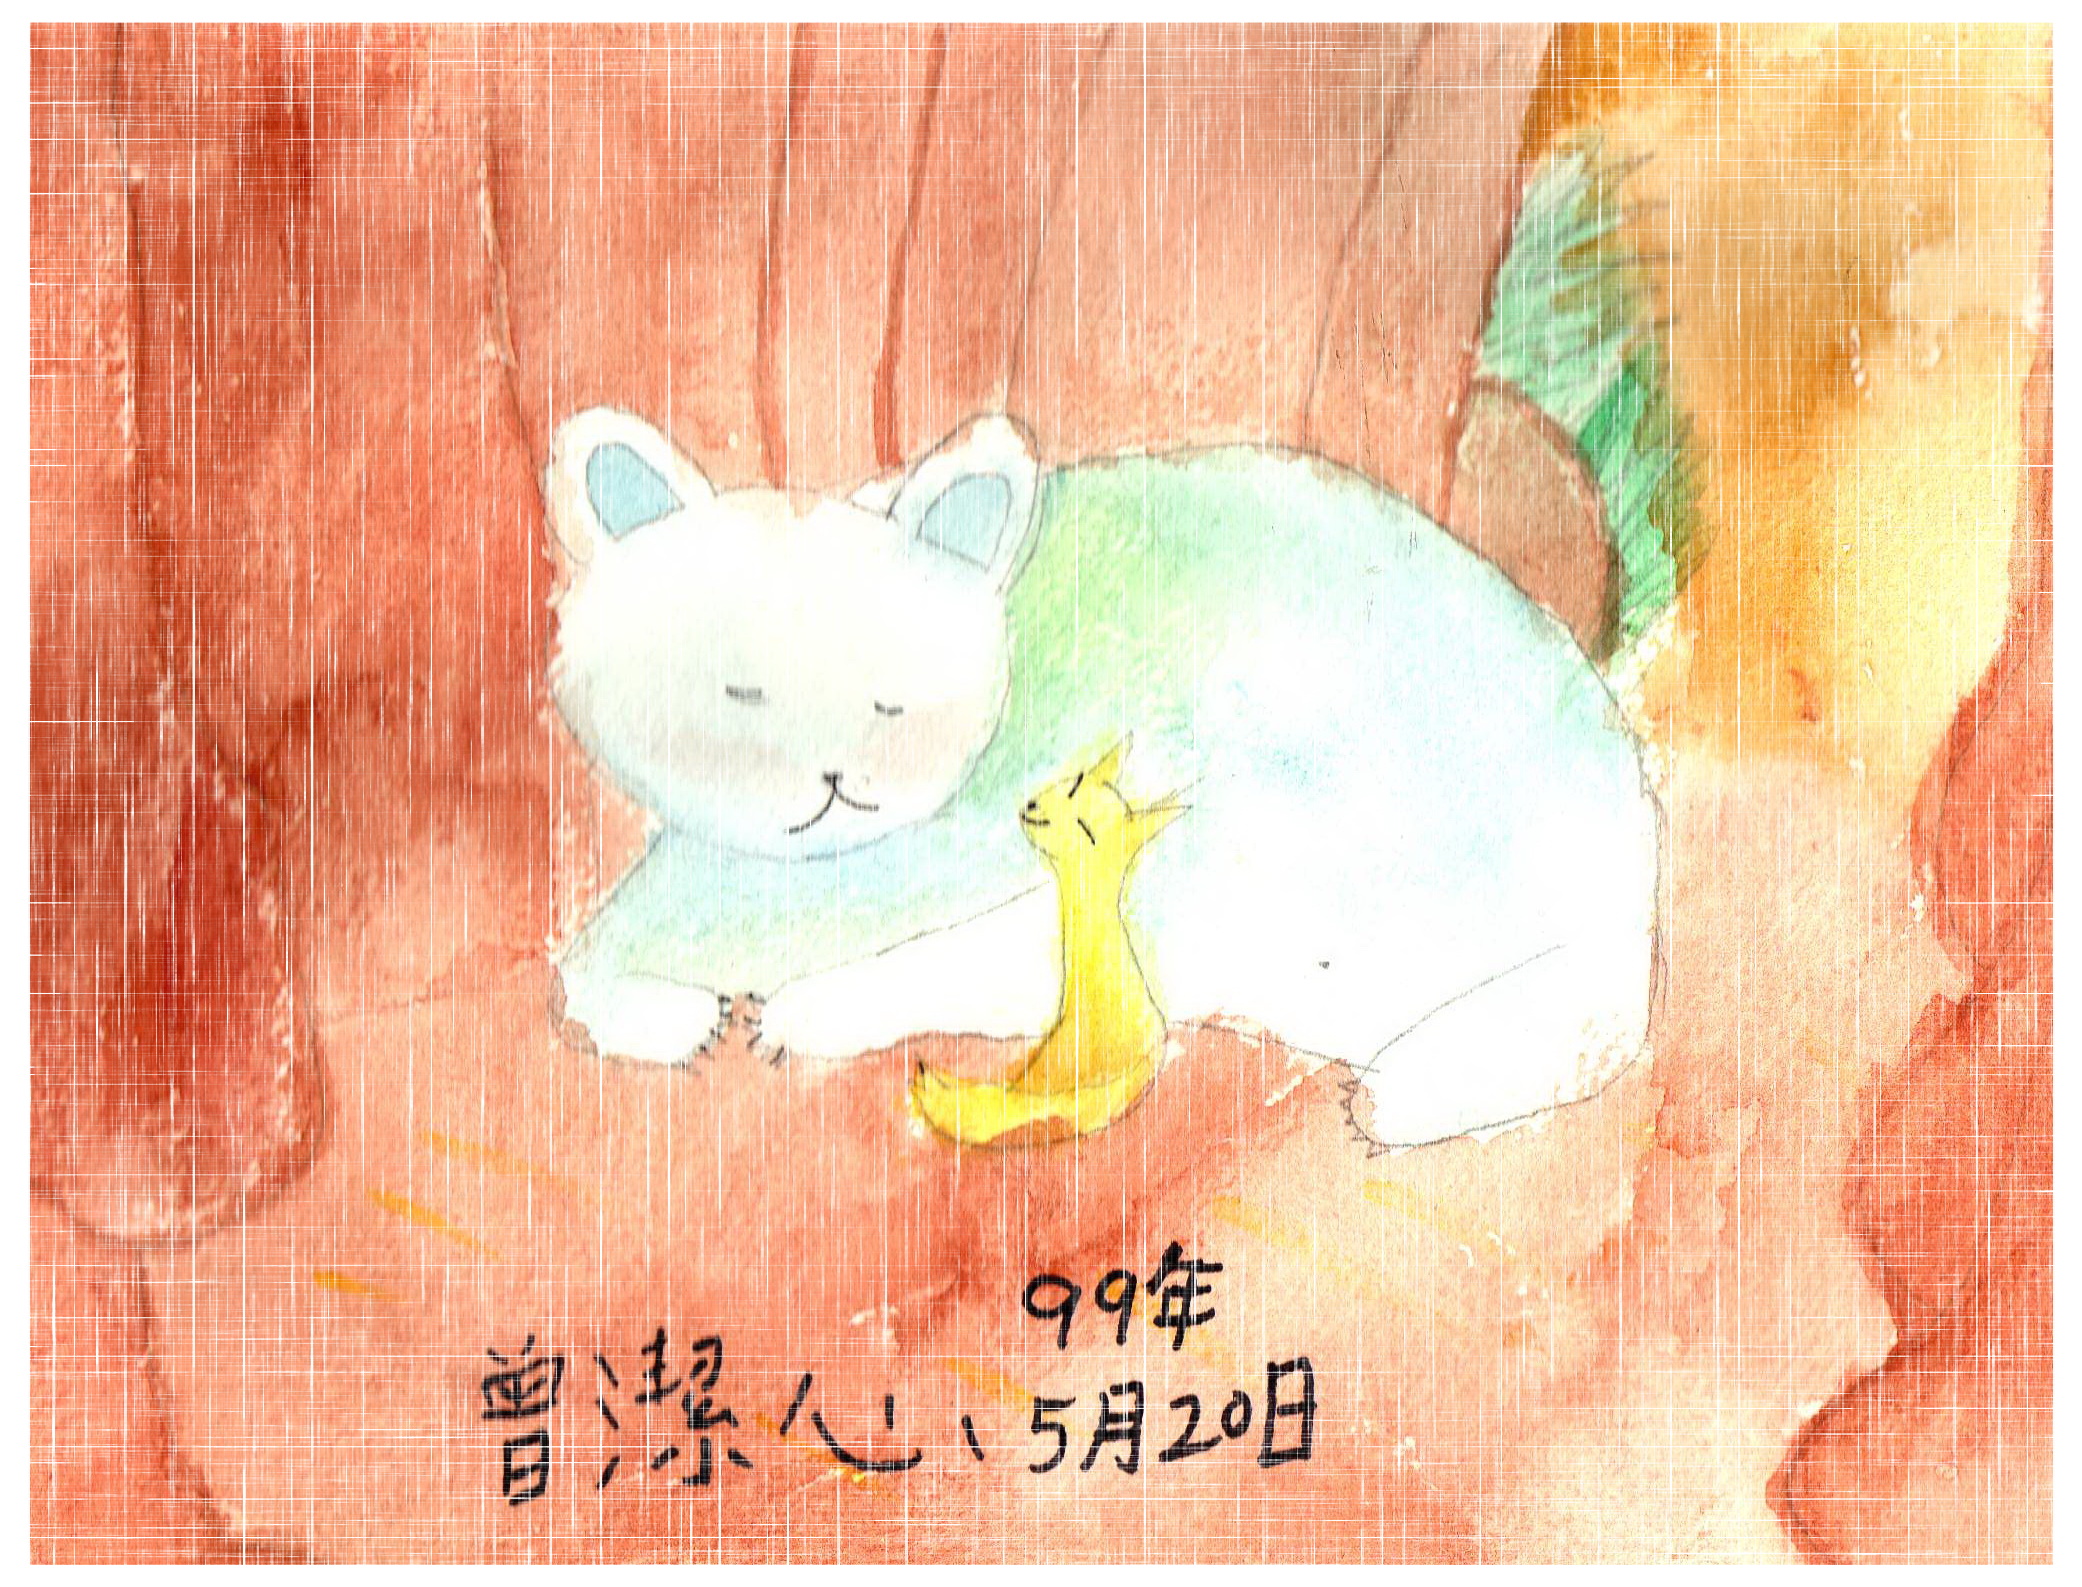 99年
曾潔心 5月20日